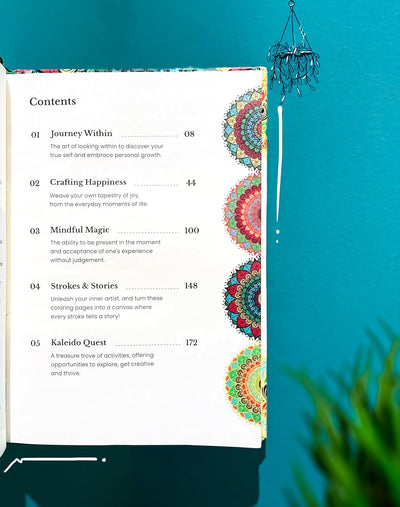 Contents
01 Journey Within 08
The art of looking within to discover your
true self and embrace personal growth.
02 Crafting Happiness 44
Weave your own tapestry of joy,
from the everyday moments of life.
03 Mindful Magic 100
The ability to be present in the moment
and acceptance of one's experience
without judgement.
04 Strokes & Stories 148
Unleash your inner artist, and turn these
coloring pages into a canvas where
every stroke tells a story!
05 Kaleido Quest 172
A treasure trove of activities, offering
opportunities to explore, get creative
and thrive.